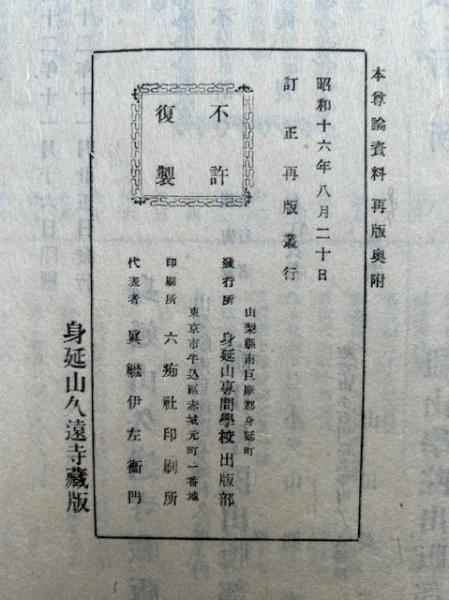 本尊論資料 再版奥附
昭和十六年八月二十日
訂正再版叢行
不許
復製
山梨縣南巨摩郡身延町
發行所 身延山專門學校出版部
東京市牛込區赤城元町一番地
印刷所 六痴社印刷所
代表者 眞繼伊左衞門
身延山久遠寺藏版